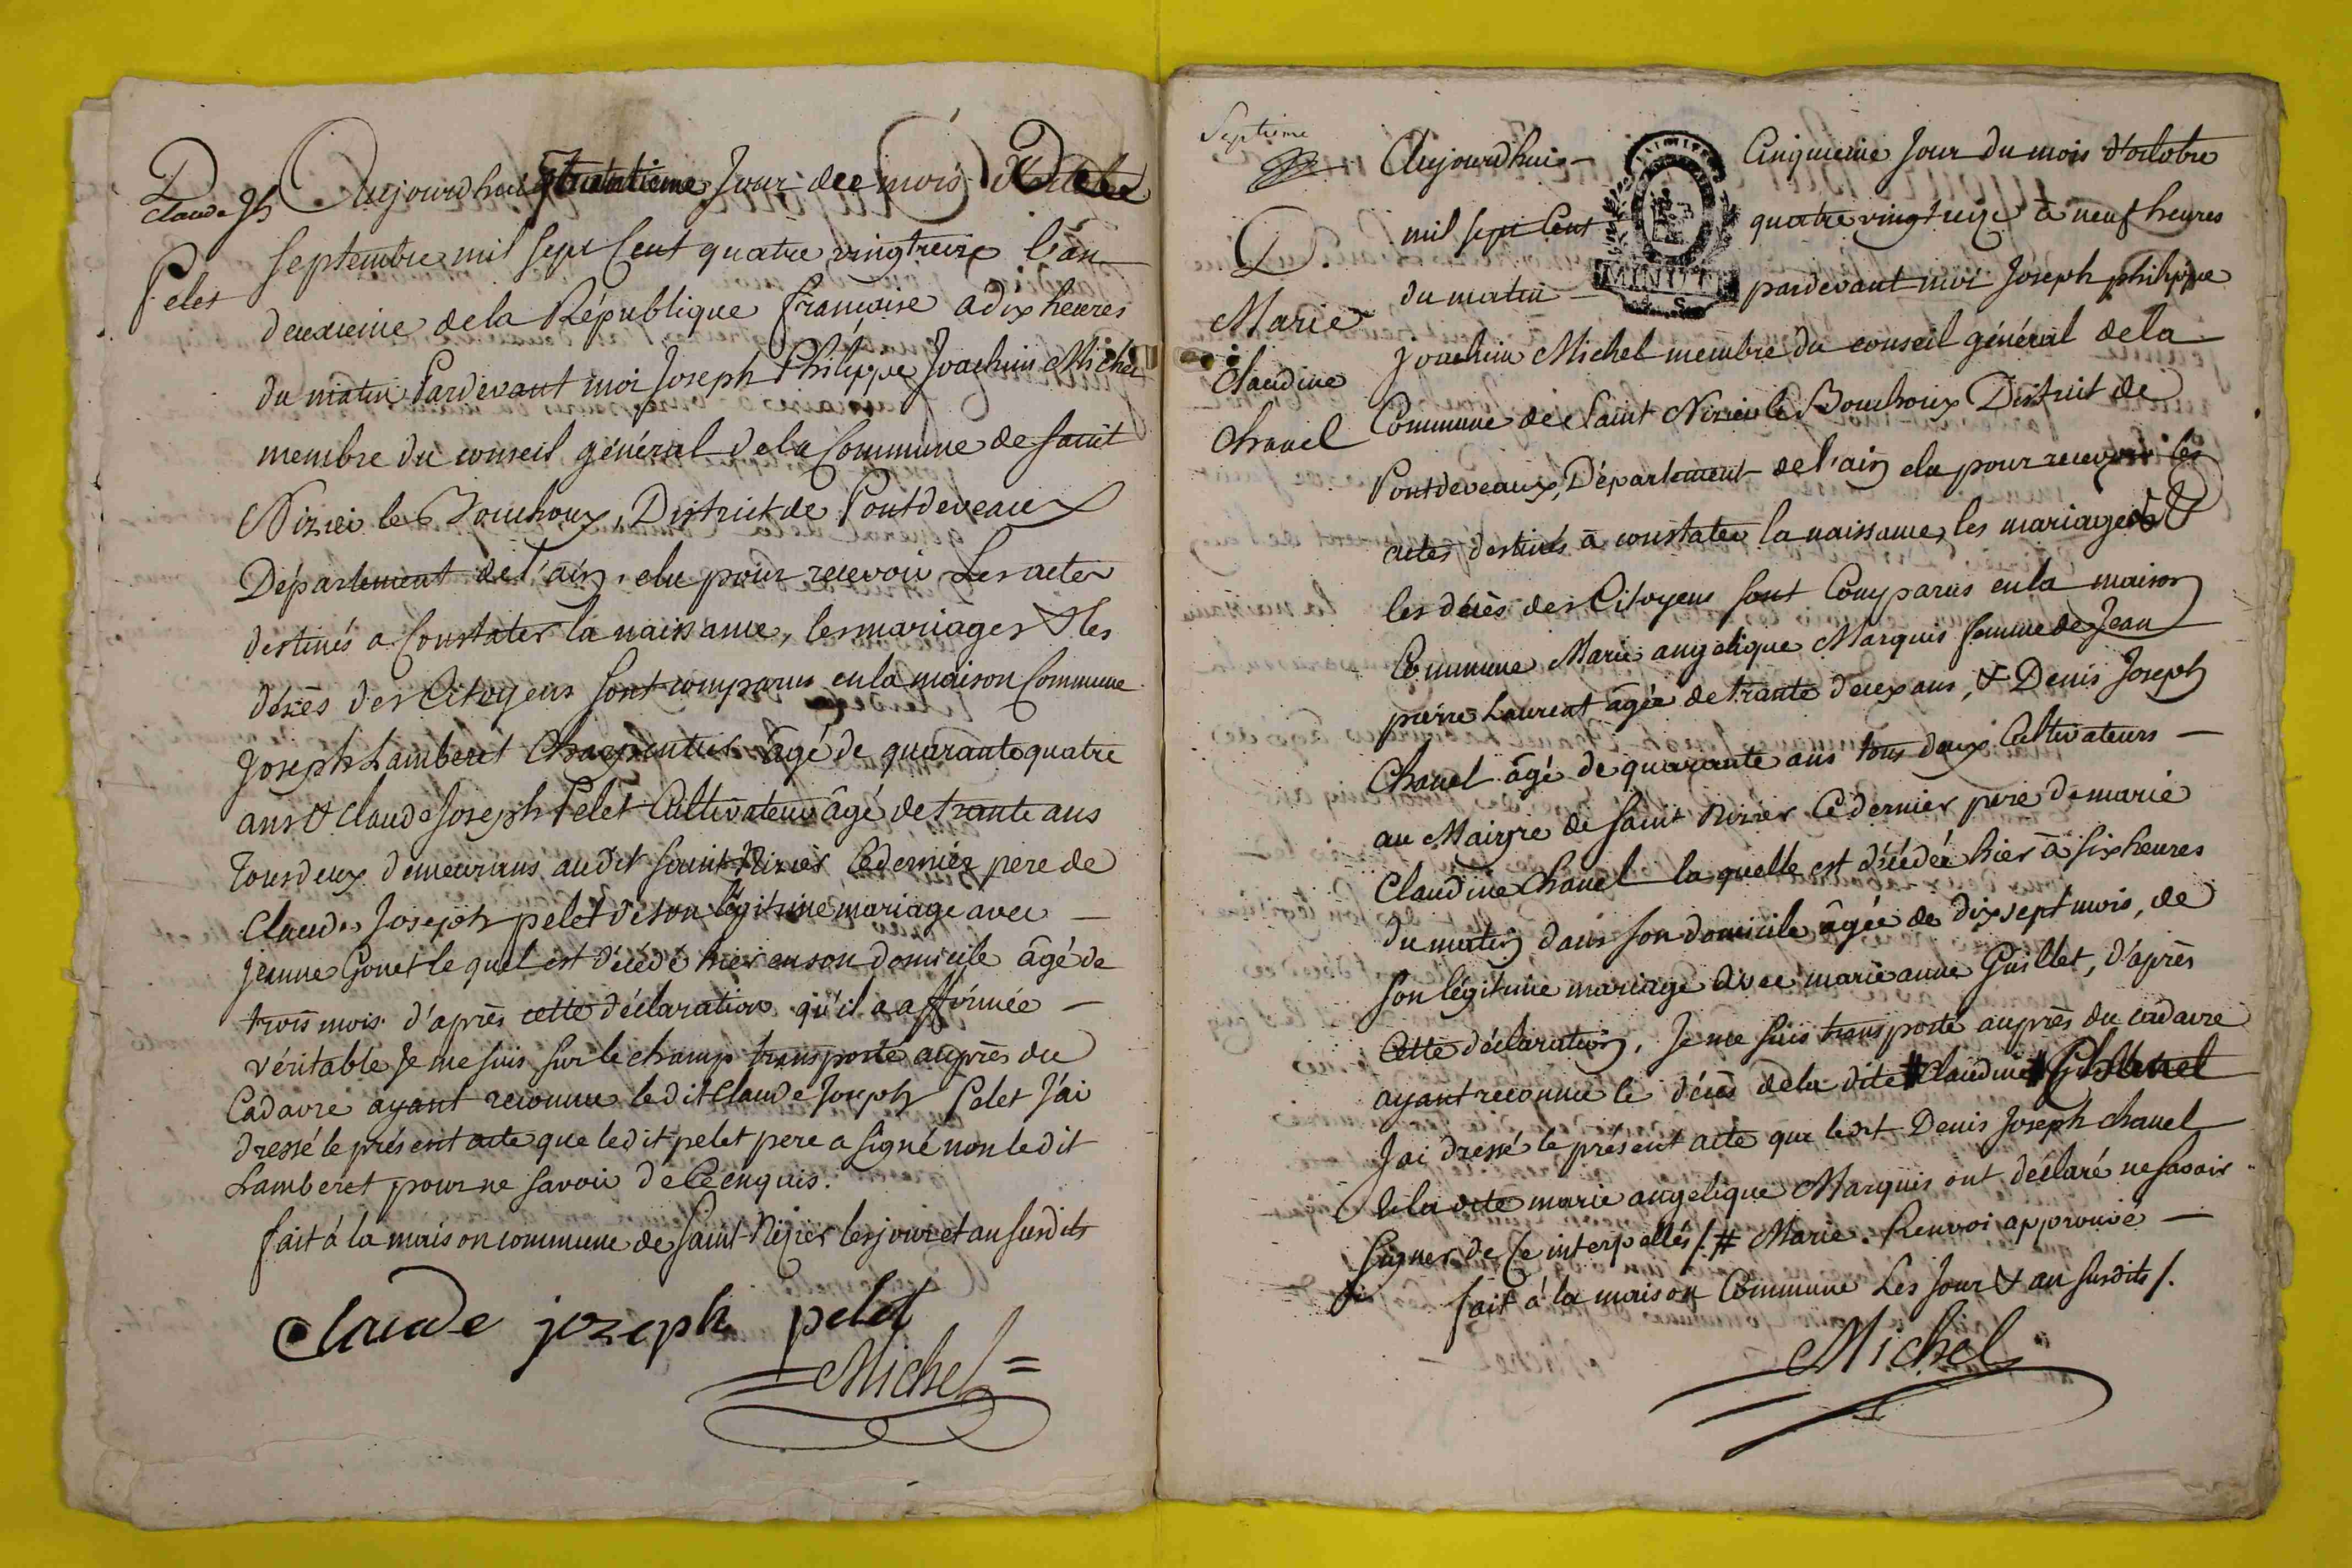 D
Claude Jh
Pelet
Aujourdhui trantieme Jour des mois
septembre mil sept Cent quatre vingtreize l'an
deuxieme de la République francaise a dix heures
du matin Pardevant moi Joseph Philippe Joachim Michel
membre du conseil général de la Commune de saint
Nizier le Bouchoux, District de Pontdeveaux
Département de l'ain, elu pour recevoir Les actes
destinés a Constater la naissance, les mariages & les
décès des Citoyens sont comparus en la maison Commune
Joseph Lamberet Charpentier âgé de quarante quatre
ans & Claude Joseph Pelet Cultivateur âgé de trante ans
Tous deux demeurans audit saint Nizier Ce dernier pere de
Claude Joseph pelet de son légitime mariage avec —
jeanne Gonet le quel est décédé hier en son domicile âgé de
trois mois. d'après cette déclaration qu'il a affirmée —
véritable Je me suis sur le champ transporté auprès du
Cadavre ayant reconnu le dit Claude Joseph Pelet J'ai
dressé le présent acte que le dit pelet pere a signé non le dit
Lamberet pour ne savoir de Ce enquis.
fait à la maison commune de saint Nizier les jour et an susdits
Claude jozeph pelet
Michel
Septième
D.
Marie
Claudine
Chanel
Aujourdhui — Cinquieme Jour du mois d'octobre
mil sept Cent quatre vingtreize à neuf heures
MINUTE
du matin — pardevant moi Joseph philippe
Joachim Michel membre du conseil général de la
Commune de Saint Nizier le Bouchoux District de
Pontdeveaux, Département de l'ain elu pour recevoir les
actes destinés à constater la naissance, les mariages &
les décès des Citoyens sont Comparus en la maison
Commune Marie angelique Marquis femme de Jean
pierre Laurent âgée de trante deux ans, & Denis Joseph
Chanel âgé de quarante ans tous deux Cultivateurs —
au Maigre de saint Nizier Ce dernier pere de marie
Claudine Chanel la quelle est décédée hier à six heures
du matin dans son domicile âgée de dix sept mois, de
son légitime mariage avec marie anne Guillet, d'après
Cette déclaration, Je me suis transporté auprès du cadavre
ayant reconnu le décès de la dite # Claudine # Chanel
J'ai dressé le présent acte que le dit Denis Joseph chanel
& la dite marie angelique Marquis ont déclaré ne savoir
signer de Ce interpellés /. # Marie. Renvoi approuvé —
fait à la maison Commune Les Jour & an susdits /.
Michel